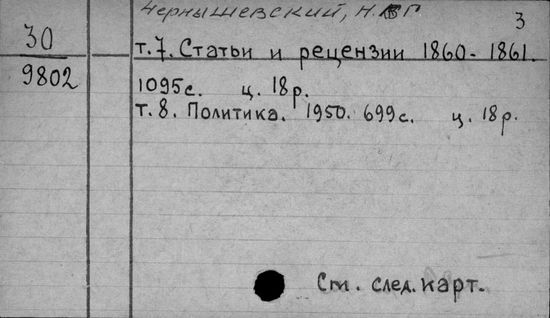 Чернышевский, Н. Г
3
30
9802
т. 7. Статьи и рецензии 1860-1861.
1095с. ц. 18р.
т. 8. Политика. 1950. 699с. ц. 18р.
См. след. карт.